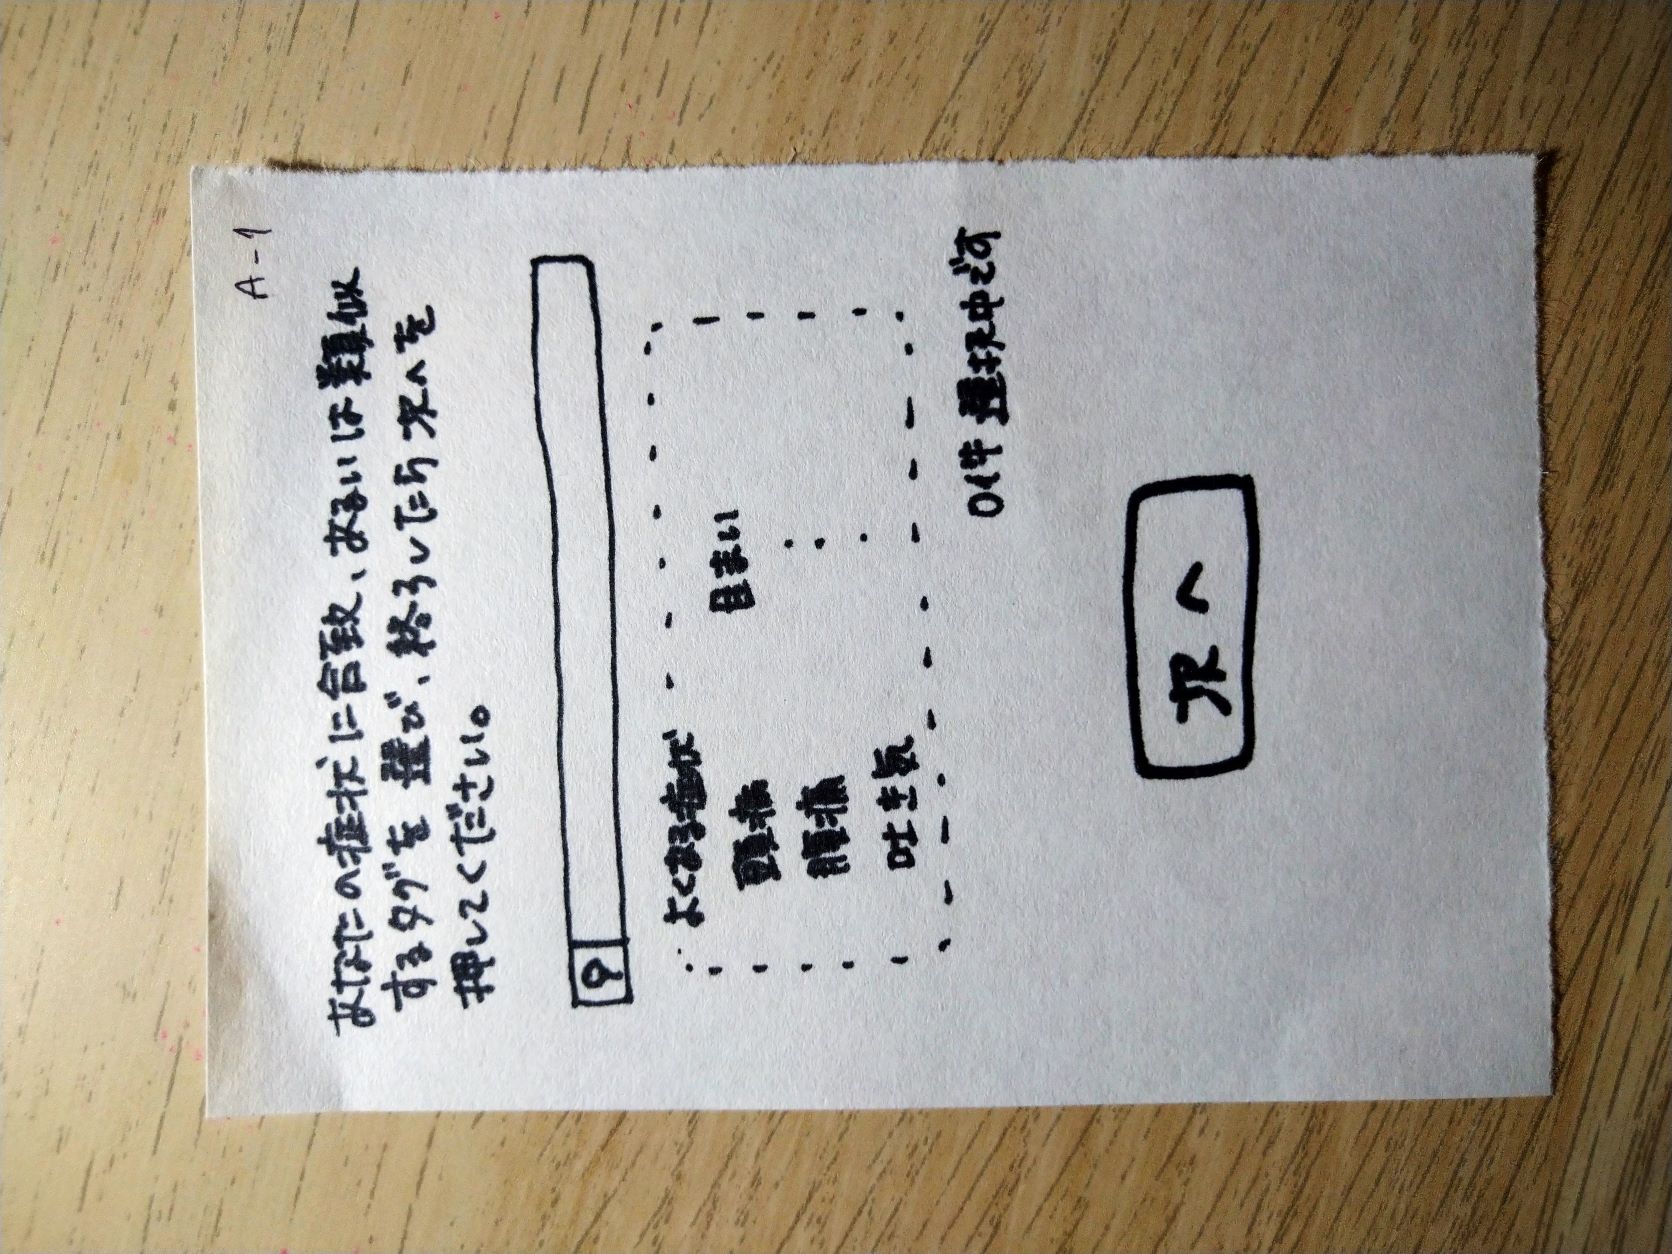 A-1
あなたの症状に合致、あるいは類似
するタグを選び、終了したら次へを
押してください。
よくある症状
頭痛
目まい
腹痛
吐き気
0件選択中です
次へ